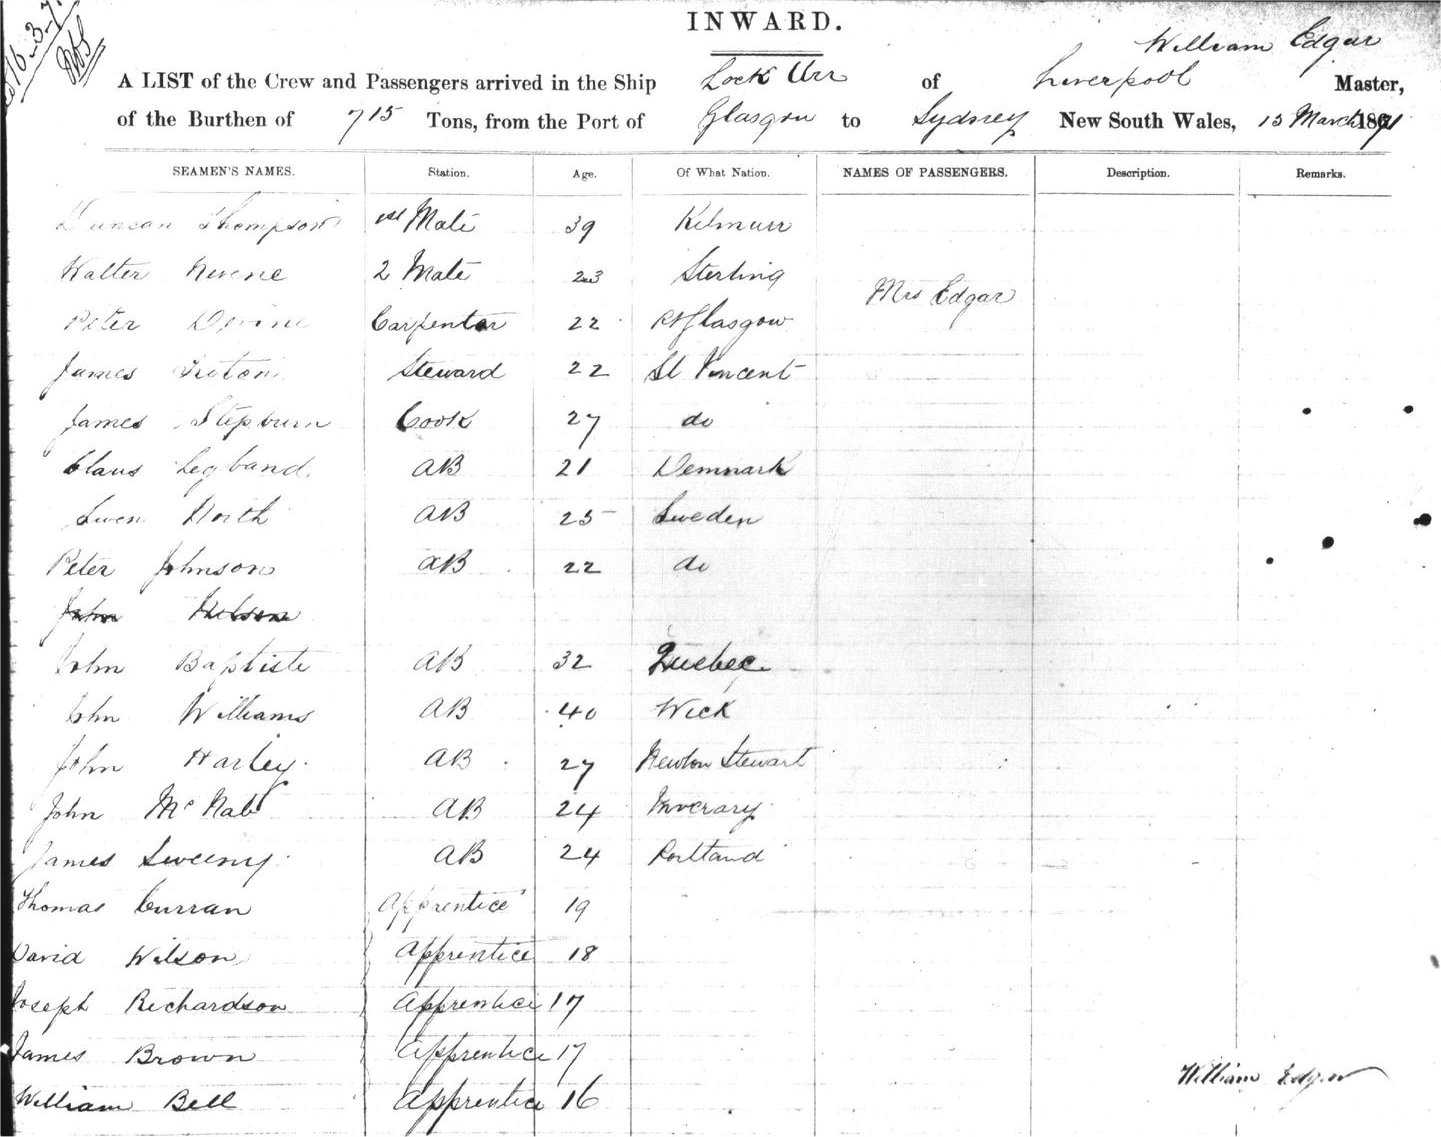 INWARD.
William Edgar
A LIST of the Crew and Passengers arrived in the Ship Lock Urr of Liverpool Master,
of the Burthen of 715 Tons, from the Port of Glasgow to Sydney New South Wales, 15 March 1871
SEAMEN'S NAMES. Station. Age. Of What Nation. NAMES OF PASSENGERS. Description. Remarks.
Duncan Thompson 1st Mate 39
Walter Nevene 2 Mate 23 Sterling
Mrs Edgar
Peter Devine Carpenter 22 Pt Glasgow
James Steward 22 St Vincent
James Stepburn Cook 27 do
Claus Legband AB 21 Denmark
Swen North AB 25 Sweden
Peter Johnson AB 22 do
John
John Baptiste AB 32 Quebec
John Williams AB 40 Wick
John Harley AB 27 Newton Stewart
John McNab AB 24 Inverary
James Sweeny AB 24 Portland
Thomas Curran Apprentice 19
David Wilson Apprentice 18
Joseph Richardson Apprentice 17
James Brown Apprentice 17
William Bell Apprentice 16
William Edgar